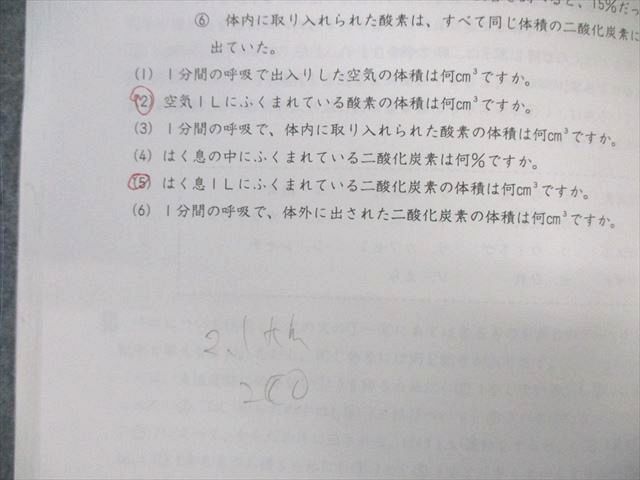 と、15%だっ
⑥ 体内に取り入れられた酸素は、すべて同じ体積の二酸化炭素に
出ていた。
(1) 1分間の呼吸で出入りした空気の体積は何cm³ですか。
(2) 空気1Lにふくまれている酸素の体積は何cm³ですか。
(3) 1分間の呼吸で、体内に取り入れられた酸素の体積は何cm³ですか。
(4) はく息の中にふくまれている二酸化炭素は何%ですか。
(5) はく息1Lにふくまれている二酸化炭素の体積は何cm³ですか。
(6) 1分間の呼吸で、体外に出された二酸化炭素の体積は何cm³ですか。